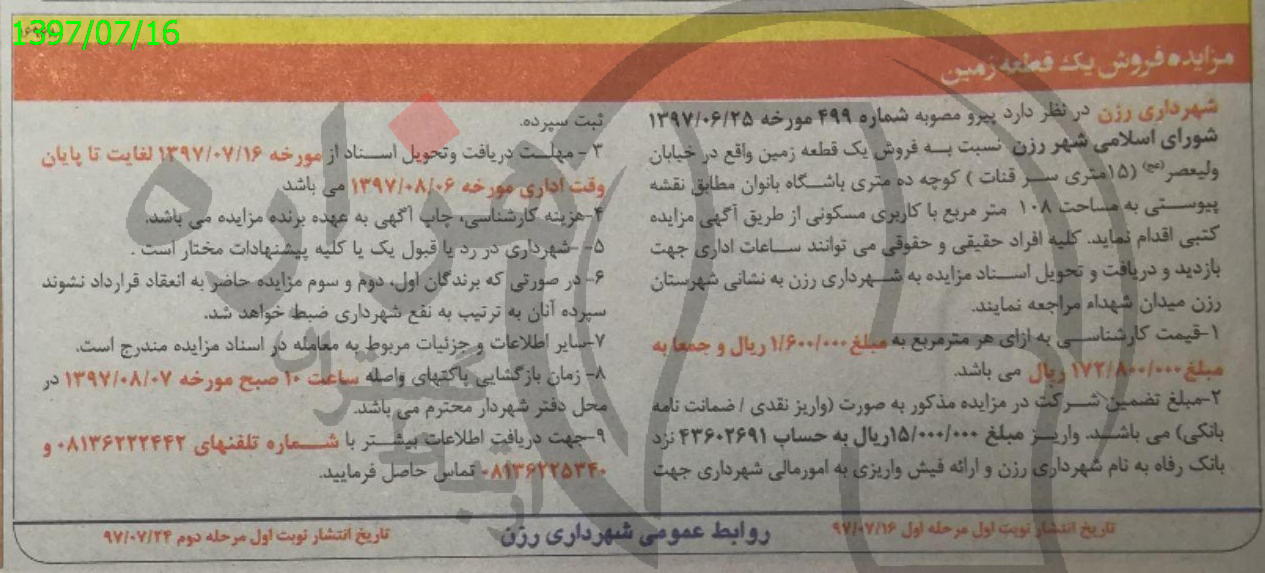 1397/07/16
مزایده فروش یک قطعه زمین
شهرداری رزن در نظر دارد پیرو مصوبه شماره ۴۹۹ مورخه ۱۳۹۷/۰۶/۲۵
شورای اسلامی شهر رزن نسبت به فروش یک قطعه زمین واقع در خیابان
ولیعصر(عج) (۱۵متری سر قنات ) کوچه ده متری باشگاه بانوان مطابق نقشه
پیوستی به مساحت ۱۰۸ متر مربع با کاربری مسکونی از طریق آگهی مزایده
کتبی اقدام نماید. کلیه افراد حقیقی و حقوقی می توانند ساعات اداری جهت
بازدید و دریافت و تحویل اسناد مزایده به شهرداری رزن به نشانی شهرستان
رزن میدان شهداء مراجعه نمایند.
۱-قیمت کارشناسی به ازای هر مترمربع به مبلغ ۱/۶۰۰/۰۰۰ ریال و جمعا به
مبلغ ۱۷۲/۸۰۰/۰۰۰ ریال می باشد.
۲-مبلغ تضمین شرکت در مزایده مذکور به صورت (واریز نقدی / ضمانت نامه
بانکی) می باشد. واریز مبلغ ۱۵/۰۰۰/۰۰۰ریال به حساب ۴۳۶۰۲۶۹۱ نزد
بانک رفاه به نام شهرداری رزن و ارائه فیش واریزی به امورمالی شهرداری جهت
ثبت سپرده.
۳- مهلت دریافت وتحویل اسناد از مورخه ۱۳۹۷/۰۷/۱۶ لغایت تا پایان
وقت اداری مورخه ۱۳۹۷/۰۸/۰۶ می باشد
۴-هزینه کارشناسی، چاپ آگهی به عهده برنده مزایده می باشد.
۵- شهرداری در رد یا قبول یک یا کلیه پیشنهادات مختار است .
۶- در صورتی که برندگان اول، دوم و سوم مزایده حاضر به انعقاد قرارداد نشوند
سپرده آنان به ترتیب به نفع شهرداری ضبط خواهد شد.
۷-سایر اطلاعات و جزئیات مربوط به معامله در اسناد مزایده مندرج است.
۸- زمان بازگشایی پاکتهای واصله ساعت ۱۰ صبح مورخه ۱۳۹۷/۰۸/۰۷ در
محل دفتر شهردار محترم می باشد.
۹-جهت دریافت اطلاعات بیشتر با شماره تلفنهای ۰۸۱۳۶۲۲۲۴۴۲ و
۰۸۱۳۶۲۲۵۳۴۰ تماس حاصل فرمایید.
تاریخ انتشار نوبت اول مرحله اول ۹۷/۰۷/۱۶
روابط عمومی شهرداری رزن
تاریخ انتشار نوبت اول مرحله دوم ۹۷/۰۷/۲۴
هزاره